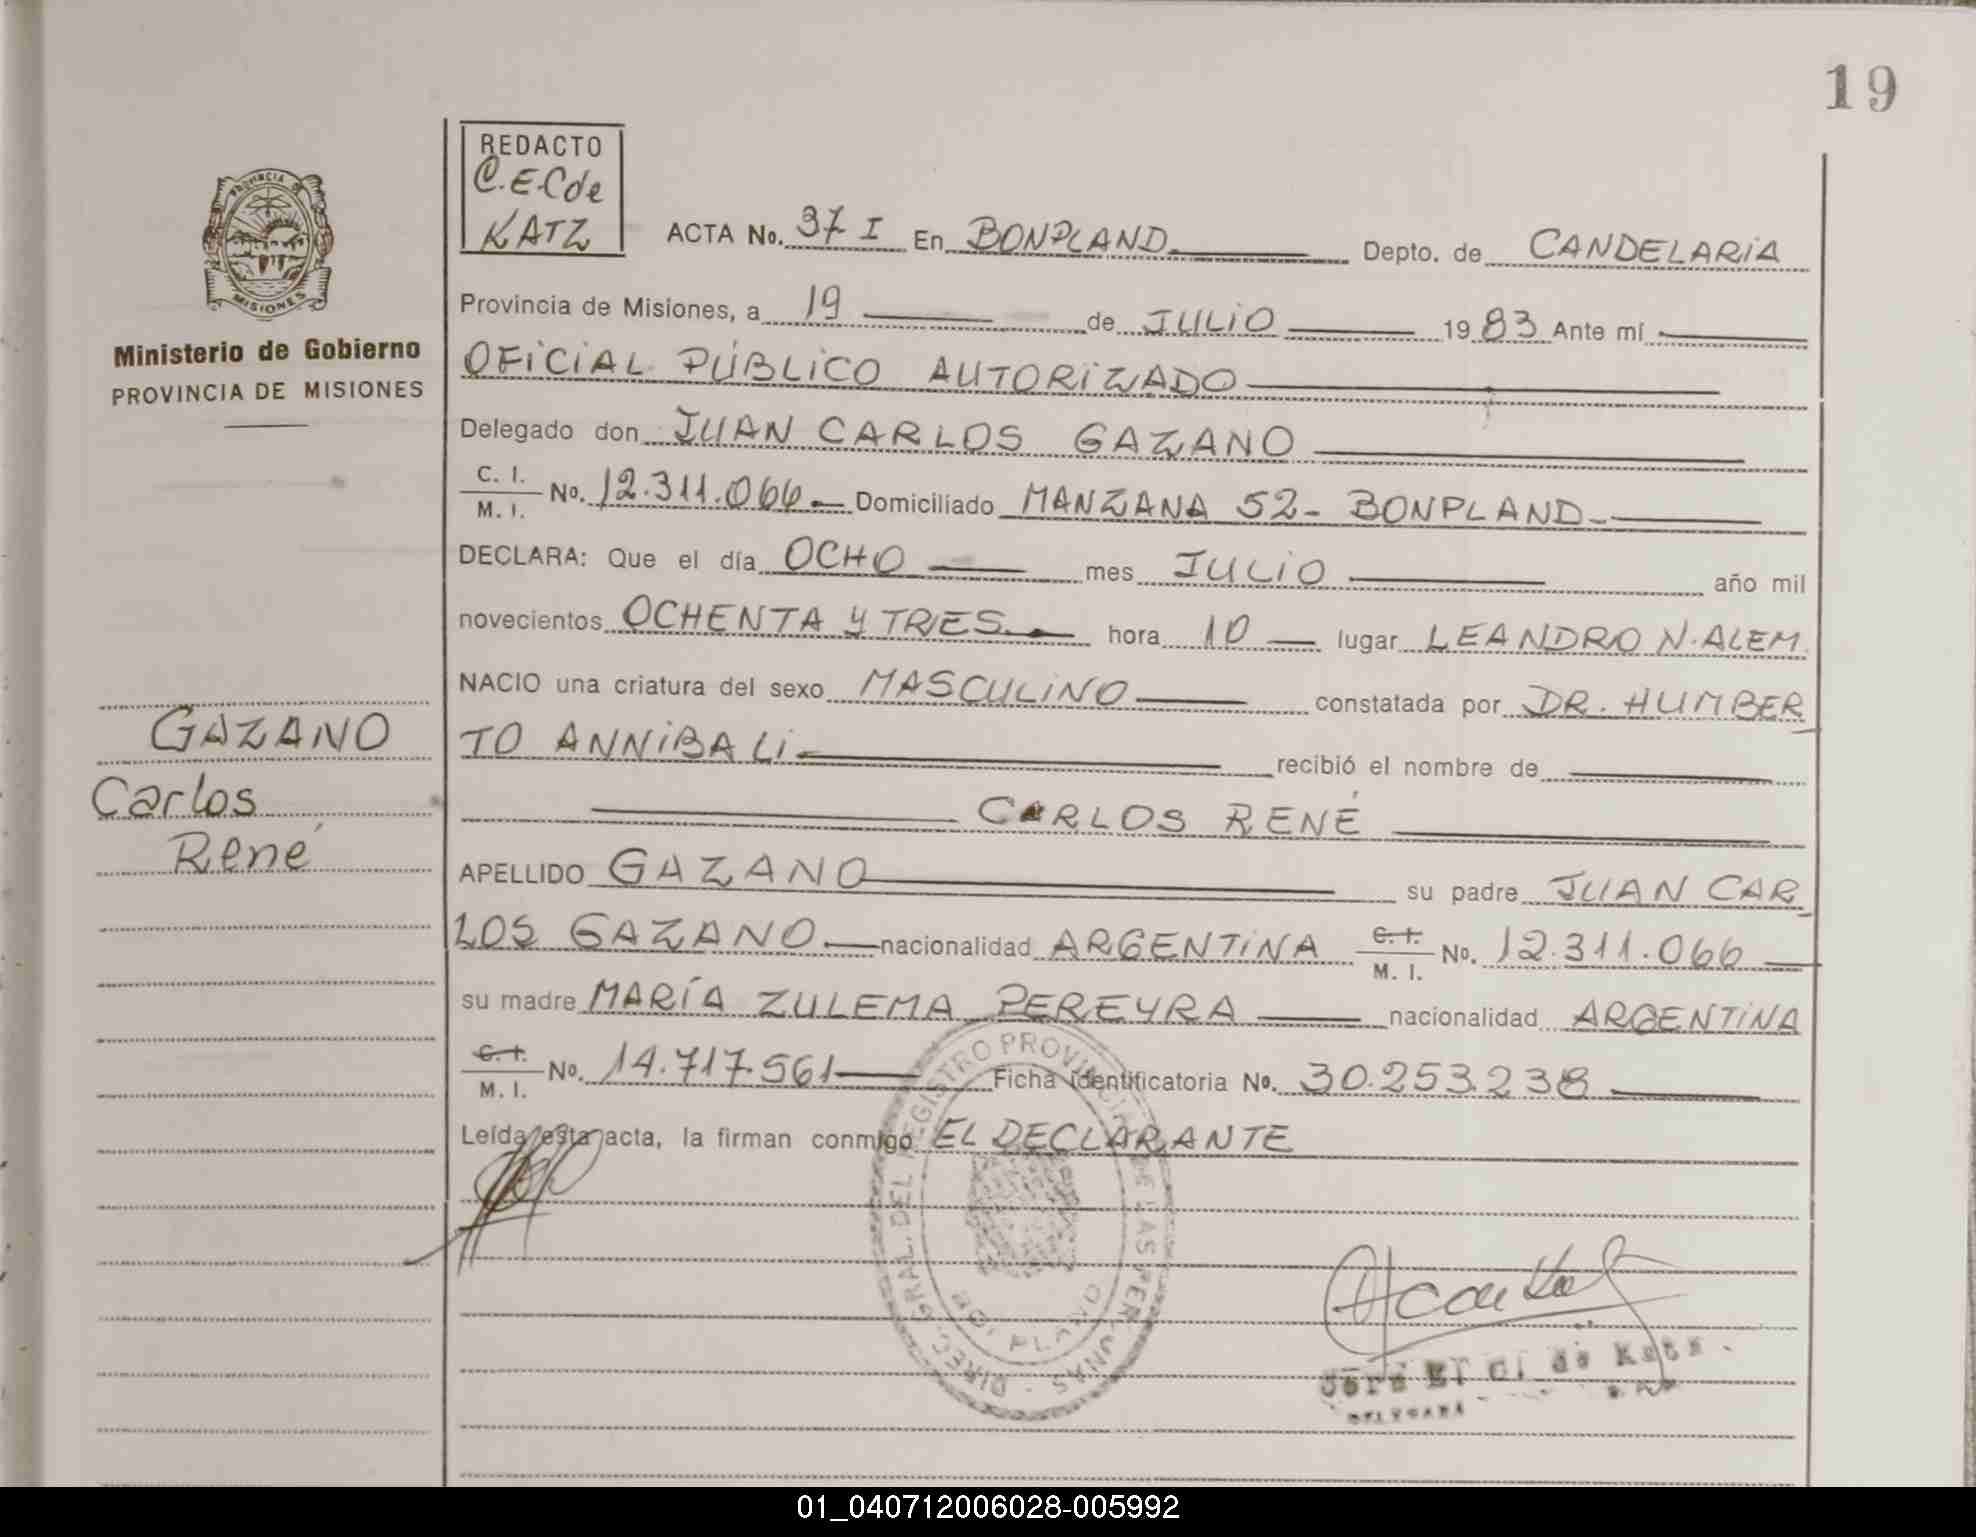 19
REDACTO
C.E.C de
KATZ
PROVINCIA DE
MISIONES
Ministerio de Gobierno
PROVINCIA DE MISIONES
ACTA No. 37 I En BONPLAND Depto. de CANDELARIA
Provincia de Misiones, a 19 de JULIO 1983 Ante mí
OFICIAL PÚBLICO AUTORIZADO
Delegado don JUAN CARLOS GAZANO
C. I.
M. I. No. 12.311.066 Domiciliado MANZANA 52- BONPLAND-
DECLARA: Que el día OCHO mes JULIO año mil
novecientos OCHENTA Y TRES hora 10 lugar LEANDRO N. ALEM.
NACIO una criatura del sexo MASCULINO constatada por DR. HUMBER
TO ANNIBALI recibió el nombre de
CARLOS RENÉ
APELLIDO GAZANO su padre JUAN CAR
LOS GAZANO nacionalidad ARGENTINA C. I. M. I. No. 12.311.066
su madre MARÍA ZULEMA PEREYRA nacionalidad ARGENTINA
C. I.
M. I. No. 14.717.561 Ficha identificatoria No. 30.253.238
Leída esta acta, la firman conmigo EL DECLARANTE
GAZANO
Carlos
René
DIREC. GRAL. DEL REGISTRO PROVINCIAL DE LAS PERSONAS
de Katz
01_040712006028-005992